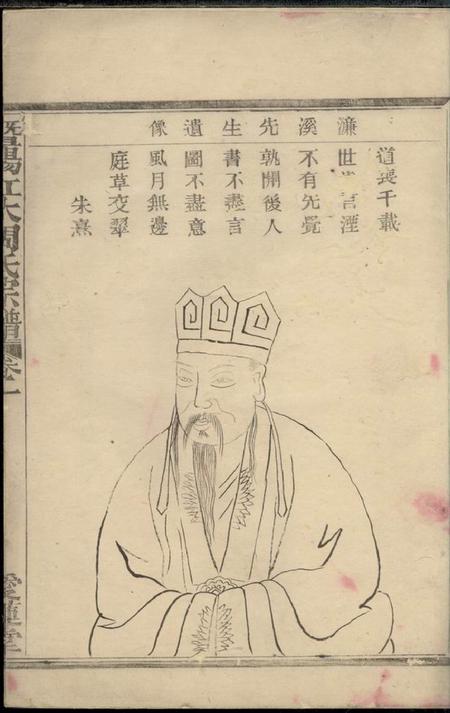 濂溪先生遺像
道喪千載
世言湮
不有先覺
孰開後人
書不盡言
圖不盡意
風月無邊
庭草交翠
朱熹
大周氏宗譜
卷一
愛蓮堂